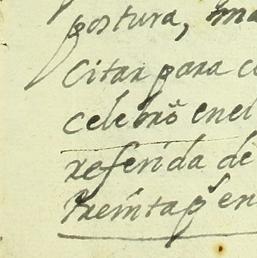 postura, ma
Citar para ce
celebró en el
referida de
treinta p.s en